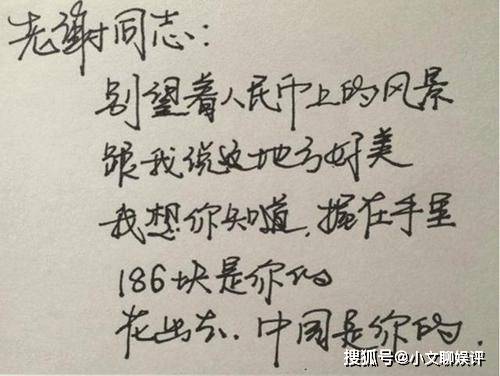 老谢同志：
别望着人民币上的风景
跟我说这地方好美
我想你知道，握在手里
186块是你的
花出去，中国是你的．
搜狐号@小文聊娱评